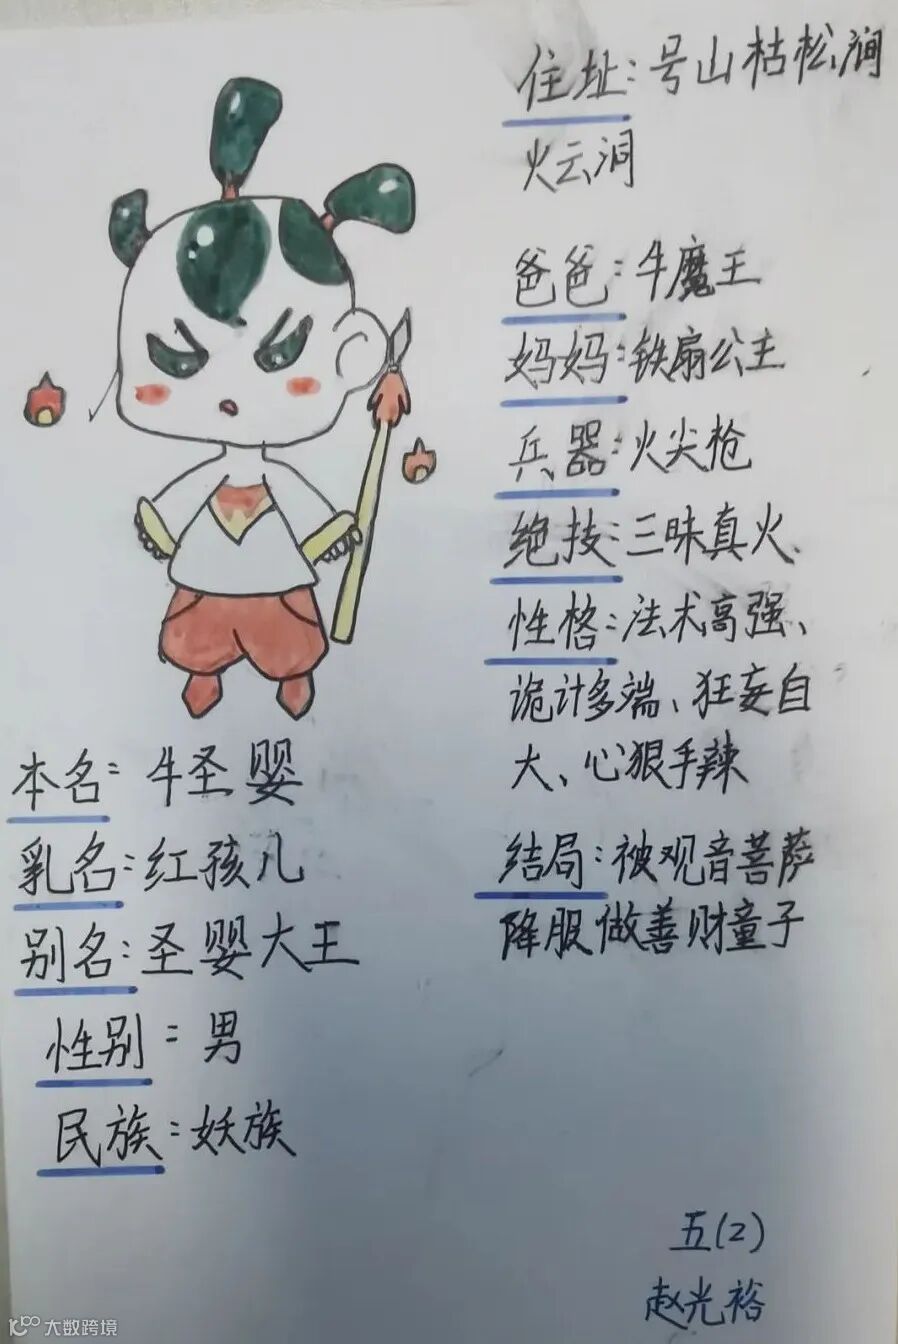 本名：牛圣婴
乳名：红孩儿
别名：圣婴大王
性别：男
民族：妖族
住址：号山枯松涧
火云洞
爸爸：牛魔王
妈妈：铁扇公主
兵器：火尖枪
绝技：三昧真火、
性格：法术高强、
诡计多端、狂妄自
大、心狠手辣
结局：被观音菩萨
降服做善财童子
五(2)
赵光裕
大数跨境